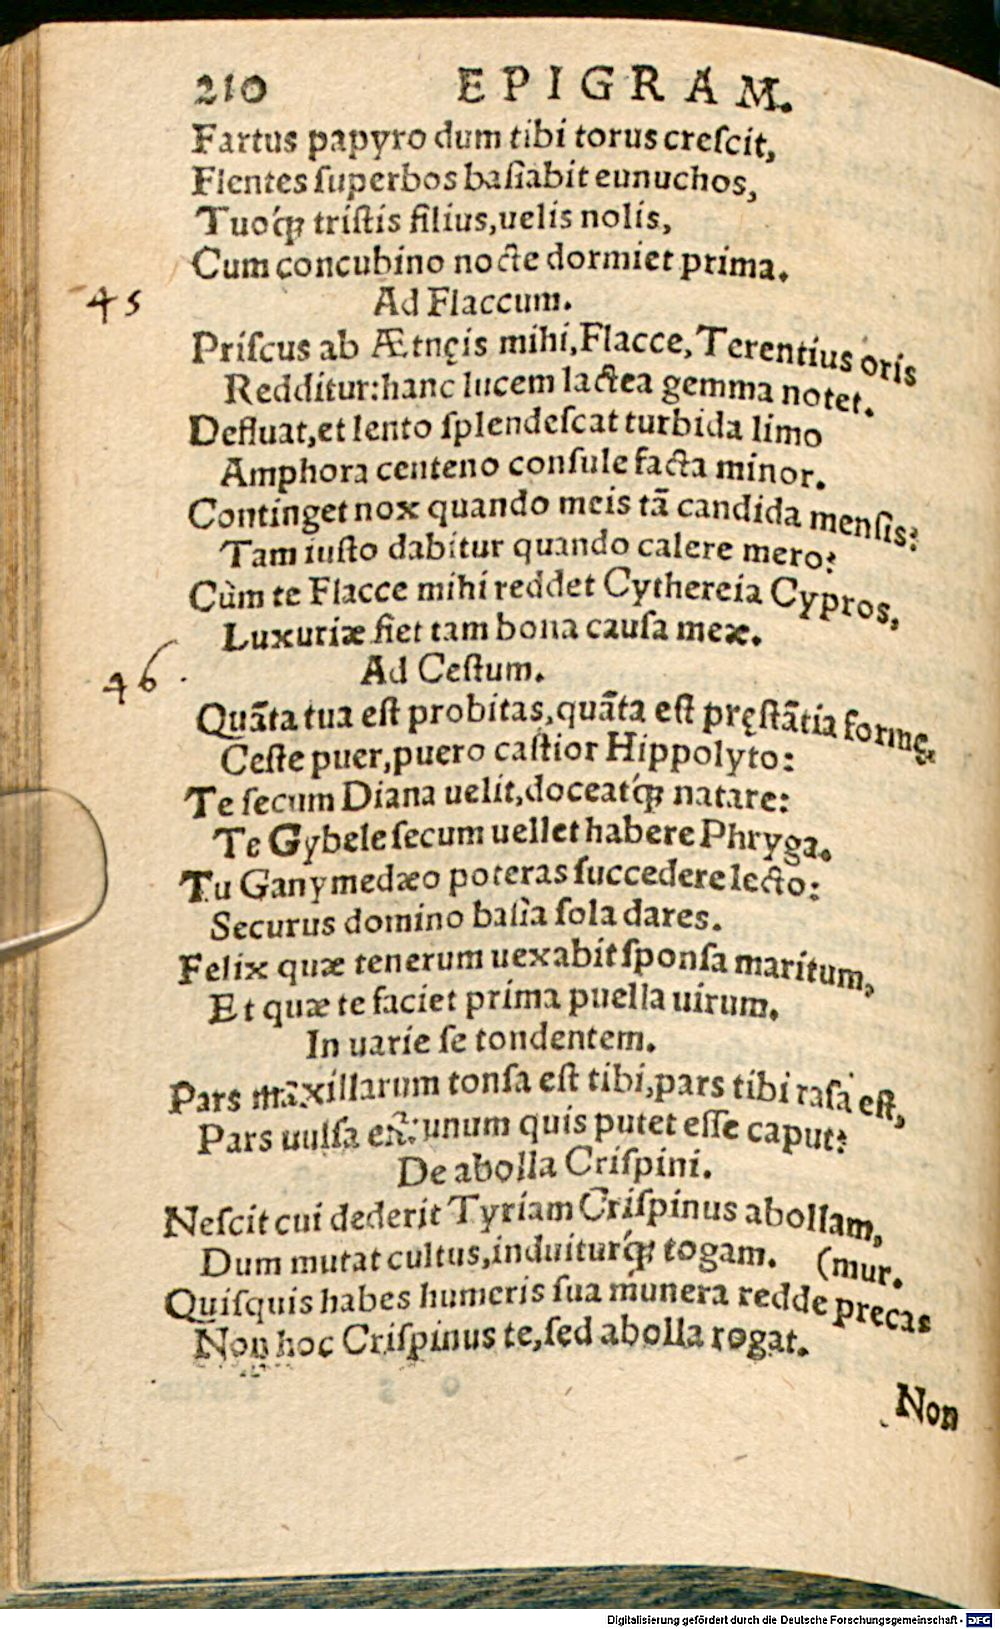 210 EPIGRAM.
Fartus papyro dum tibi torus creſcit,
Flentes ſuperbos baſiabit eunuchos,
Tuoq́ꝫ triſtis filius,uelis nolis,
Cum concubino nocte dormiet prima.
45 Ad Flaccum.
Priſcus ab Ætnęis mihi,Flacce,Terentius oris
Redditur:hanc lucem lactea gemma notet.
Defluat,et lento ſplendeſcat turbida limo
Amphora centeno conſule facta minor.
Continget nox quando meis tā candida menſis?
Tam iuſto dabitur quando calere mero?
Cùm te Flacce mihi reddet Cythereia Cypros,
Luxuriæ fiet tam bona cauſa meæ.
46. Ad Ceſtum.
Quāta tua eſt probitas,quāta eſt pręſtātia formę,
Ceſte puer,puero caſtior Hippolyto:
Te ſecum Diana uelit,doceatq́ꝫ natare:
Te Gybele ſecum uellet habere Phryga.
Tu Ganymedæo poteras ſuccedere lecto:
Securus domino baſia ſola dares.
Felix quæ tenerum uexabit ſponſa maritum,
Et quæ te faciet prima puella uirum.
In uarie ſe tondentem.
Pars māxillarum tonſa eſt tibi,pars tibi raſa eſt,
Pars uulſa eſt:unum quis putet eſſe caput?
De abolla Criſpini.
Neſcit cui dederit Tyriam Criſpinus abollam,
Dum mutat cultus,induiturq́ꝫ togam. (mur.
Quiſquis habes humeris ſua munera redde precas
Non hoc Criſpinus te,ſed abolla rogat.
Non
Digitalisierung gefördert durch die Deutsche Forschungsgemeinschaft - DFG